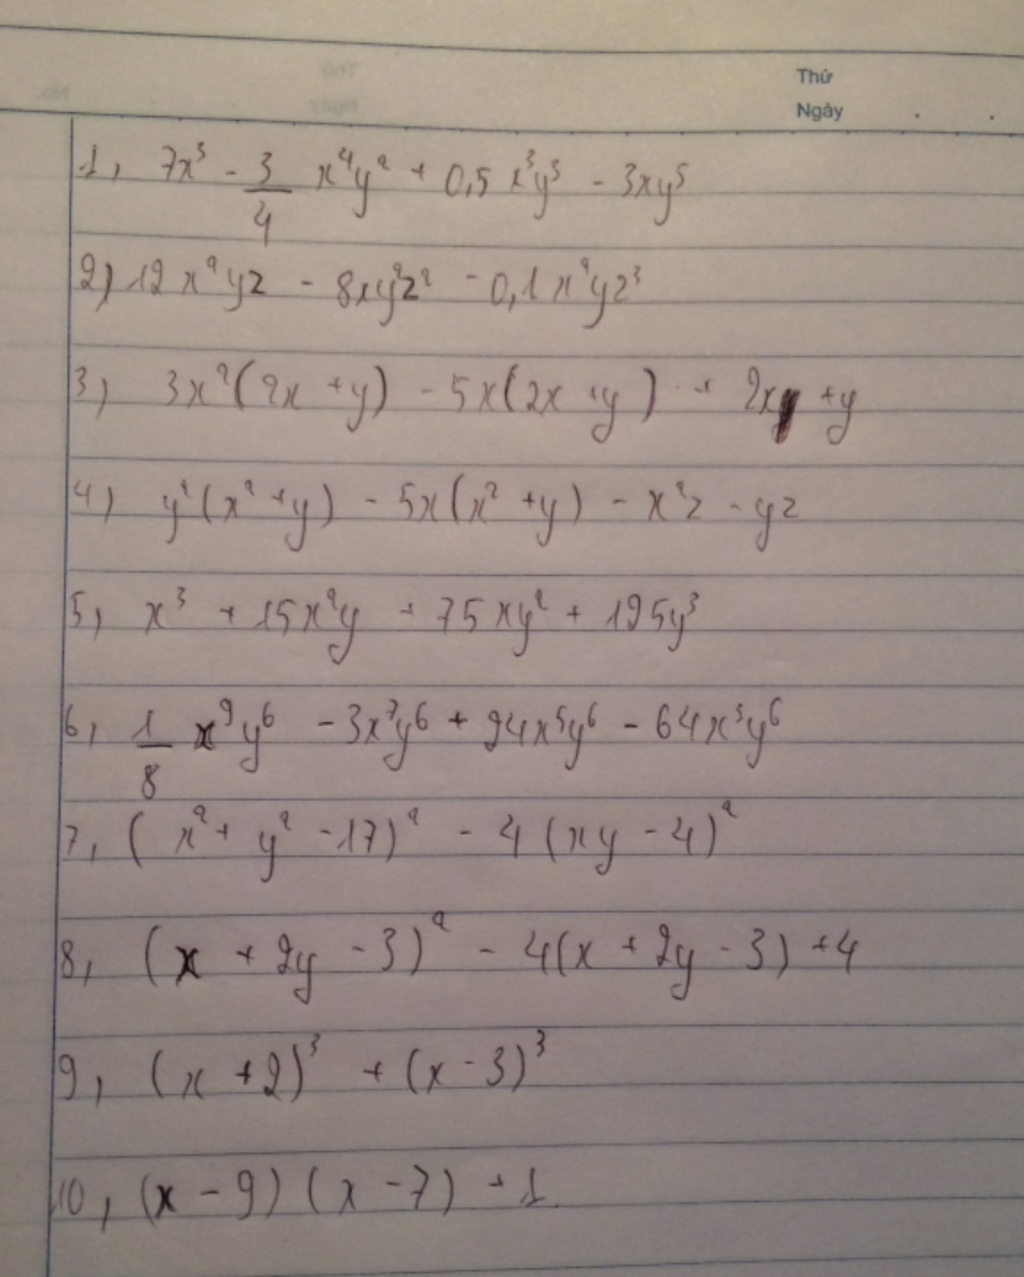 Thứ
Ngày
1, 7x³ - 3/4 x⁴y² + 0,5 x³y³ - 3xy⁵
2) 12x²yz - 8xy²z² - 0,1x²yz³
3) 3x²(2x + y) - 5x(2x + y) + 2x + y
4) y²(x² + y) - 5x(x² + y) - x²z - yz
5, x³ + 15x²y + 75xy² + 125y³
6, 1/8 x⁹y⁶ - 3x⁷y⁶ + 24x⁵y⁶ - 64x³y⁶
7, (x² + y² - 17)² - 4(xy - 4)²
8, (x + 2y - 3)² - 4(x + 2y - 3) + 4
9, (x + 2)³ + (x - 3)³
10, (x - 9)(x - 7) + 1